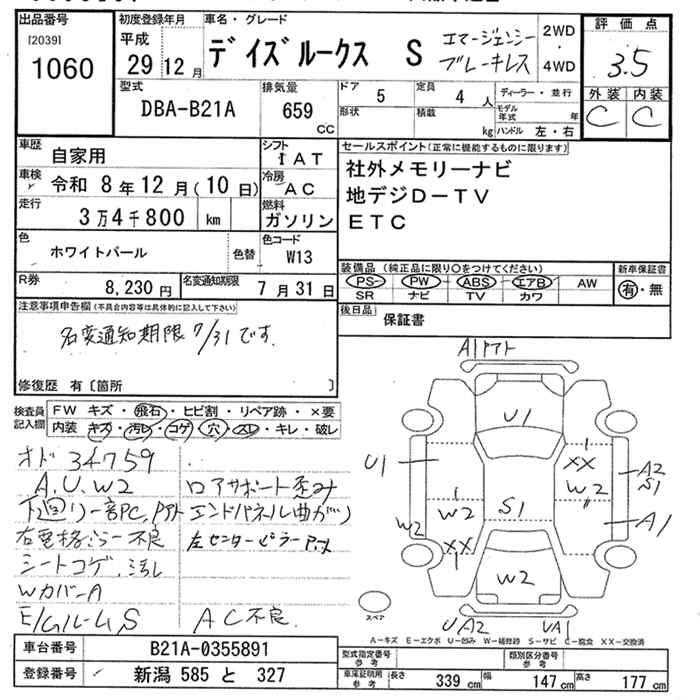 出品番号
[2039]
1060
初度登録年月
平成
29 12 月
車名・グレード
デイズルークス S エマージェンシー
ブレーキレス
2WD
・
4WD
評価点
3.5
外装 内装
C C
型式
DBA-B21A
排気量
659
cc
ドア
5
定員
4 人
形状
積載
kg
ディーラー・並行
モデル年式 年
ハンドル 左・右
車歴
自家用
シフト
I A T
車検
令和 8年12月(10日)
冷房
A C
走行
3万4千800 km
燃料
ガソリン
色
ホワイトパール
色替
色コード
W13
R券
8,230 円
名変通知期限
7月31日
セールスポイント(正常に機能するものに限ります)
社外メモリーナビ
地デジD-TV
ETC
装備品 (純正品に限り〇をつけてください)
PS PW ABS エアB AW
SR ナビ TV カワ
新車保証書
有・無
後日品
保証書
注意事項申告欄(不具合内容等は具体的に記入して下さい)
名変通知期限7/31です。
修復歴 有〔箇所 〕
検査員
記入欄
FW キズ・飛石・ヒビ割・リペア跡・×要
内装 キズ・汚レ・コゲ・穴・スレ・キレ・破レ
オド 34759
A.U.W2
下廻リ一部PC,Pアト
右電格ミラー不良
シートコゲ.汚レ
WカバーA
E/Gルーム S
ロアサポート歪み
エンドパネル曲がり
左センターピラー
AC不良
A1Pアト
U1
U1
XX
W2
A2
S1
S1
W2
W2
A1
XX
W2
UA2
UA1
スペア
A-キズ E-エクボ U-凹み W-補修跡 S-サビ C-腐食 XX-交換済
車台番号
B21A-0355891
登録番号
新潟 585 と 327
型式指定番号
参考
類別区分番号
参考
車庫証明用
参考
長さ 339 cm 幅 147 cm 高さ 177 cm